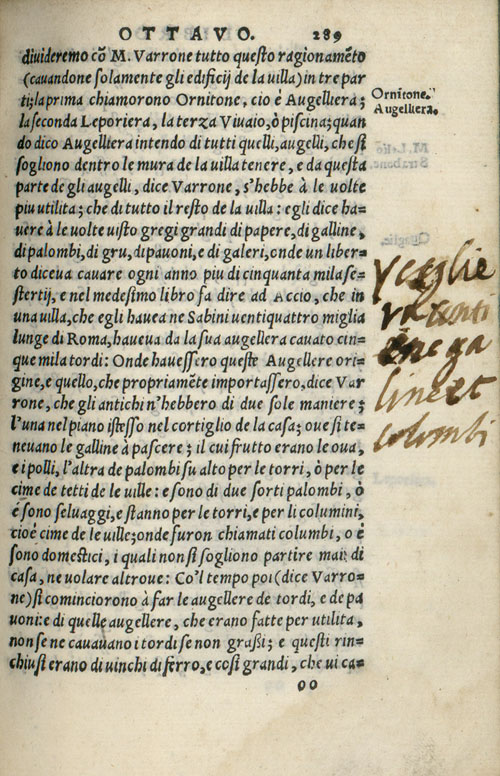 OTTAVO. 289
diuideremo cõ M. Varrone tutto questo ragionamẽto
(cauandone solamente gli edificij de la uilla) in tre par
ti; la prima chiamorono Ornitone, cio è Augelliera;
la seconda Leporiera, la terza Viuaio, ò piscina; quan
do dico Augelliera intendo di tutti quelli, augelli, che si
sogliono dentro le mura de la uilla tenere, e da questa
parte de gli augelli, dice Varrone, s'hebbe à le uolte
piu utilita; che di tutto il resto de la uilla: egli dice ha=
uere à le uolte uisto gregi grandi di papere, di galline,
di palombi, di gru, di pauoni, e di galeri, onde un liber=
to diceua cauare ogni anno piu di cinquanta mila se=
stertij, e nel medesimo libro fa dire ad Accio, che in
una uilla, che egli hauea ne Sabini uentiquattro miglia
lunge di Roma, haueua da la sua augellera cauato cin=
que mila tordi: Onde hauessero queste Augellere ori=
gine, e quello, che propriamẽte importassero, dice Var
rone, che gli antichi n'hebbero di due sole maniere;
l'una nel piano istesso nel cortiglio de la casa; oue si te=
neuano le galline à pascere; il cui frutto erano le oua,
e i polli, l'altra de palombi su alto per le torri, ò per le
cime de tetti de le uille: e sono di due sorti palombi, ò
é sono seluaggi, e stanno per le torri, e per li columini,
cioè cime de le uille; onde furon chiamati columbi, o é
sono domestici, i quali non si sogliono partire mai di
casa, ne uolare altroue: Co'l tempo poi (dice Varro=
ne) si cominciorono à far le augellere de tordi, e de pa
uoni: e di quelle augellere, che erano fatte per utilita,
non se ne cauauano i tordi se non grassi; e questi rin=
chiusi erano di uinchi di ferro, e cosi grandi, che ui ca=
OO
Ornitone.
Augelliera.
galine et
columbi